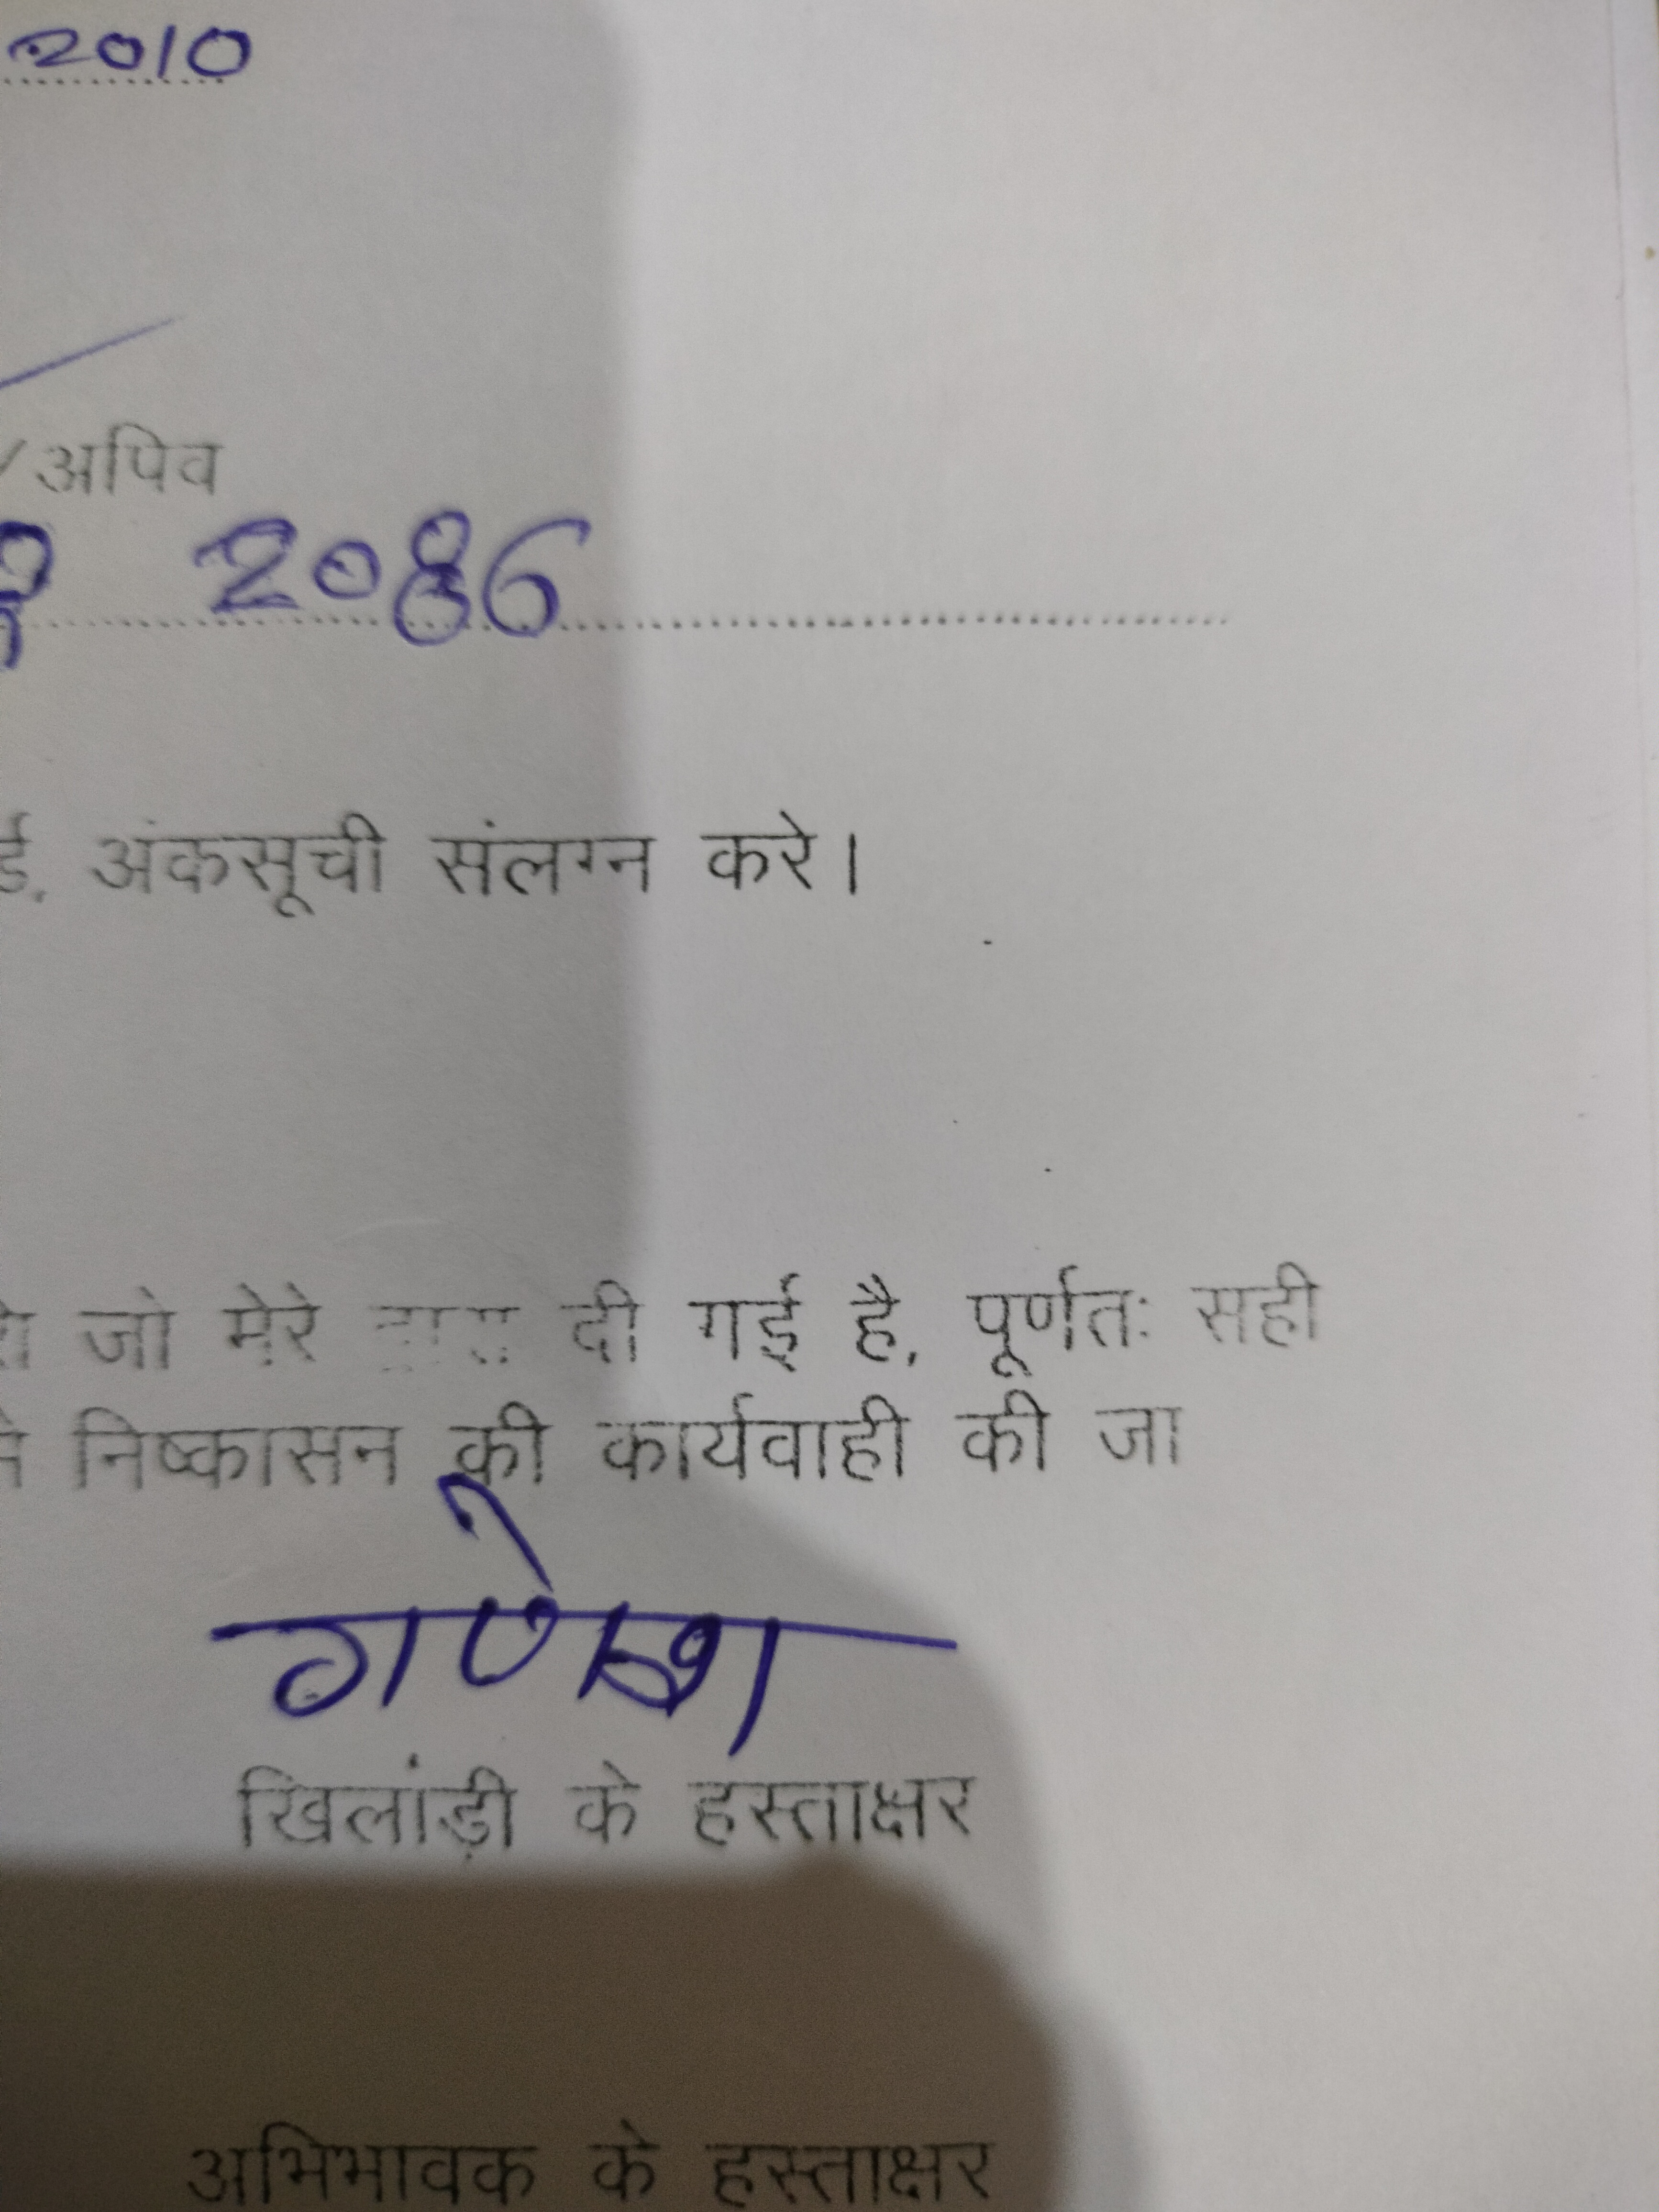 2010
/अपिव
2086
ई. अंकसूची संलग्न करे।
जो मेरे द्वारा दी गई है, पूर्णतः सही
निष्कासन की कार्यवाही की जा
गणेश
खिलांड़ी के हस्ताक्षर
अभिभावक के हस्ताक्षर